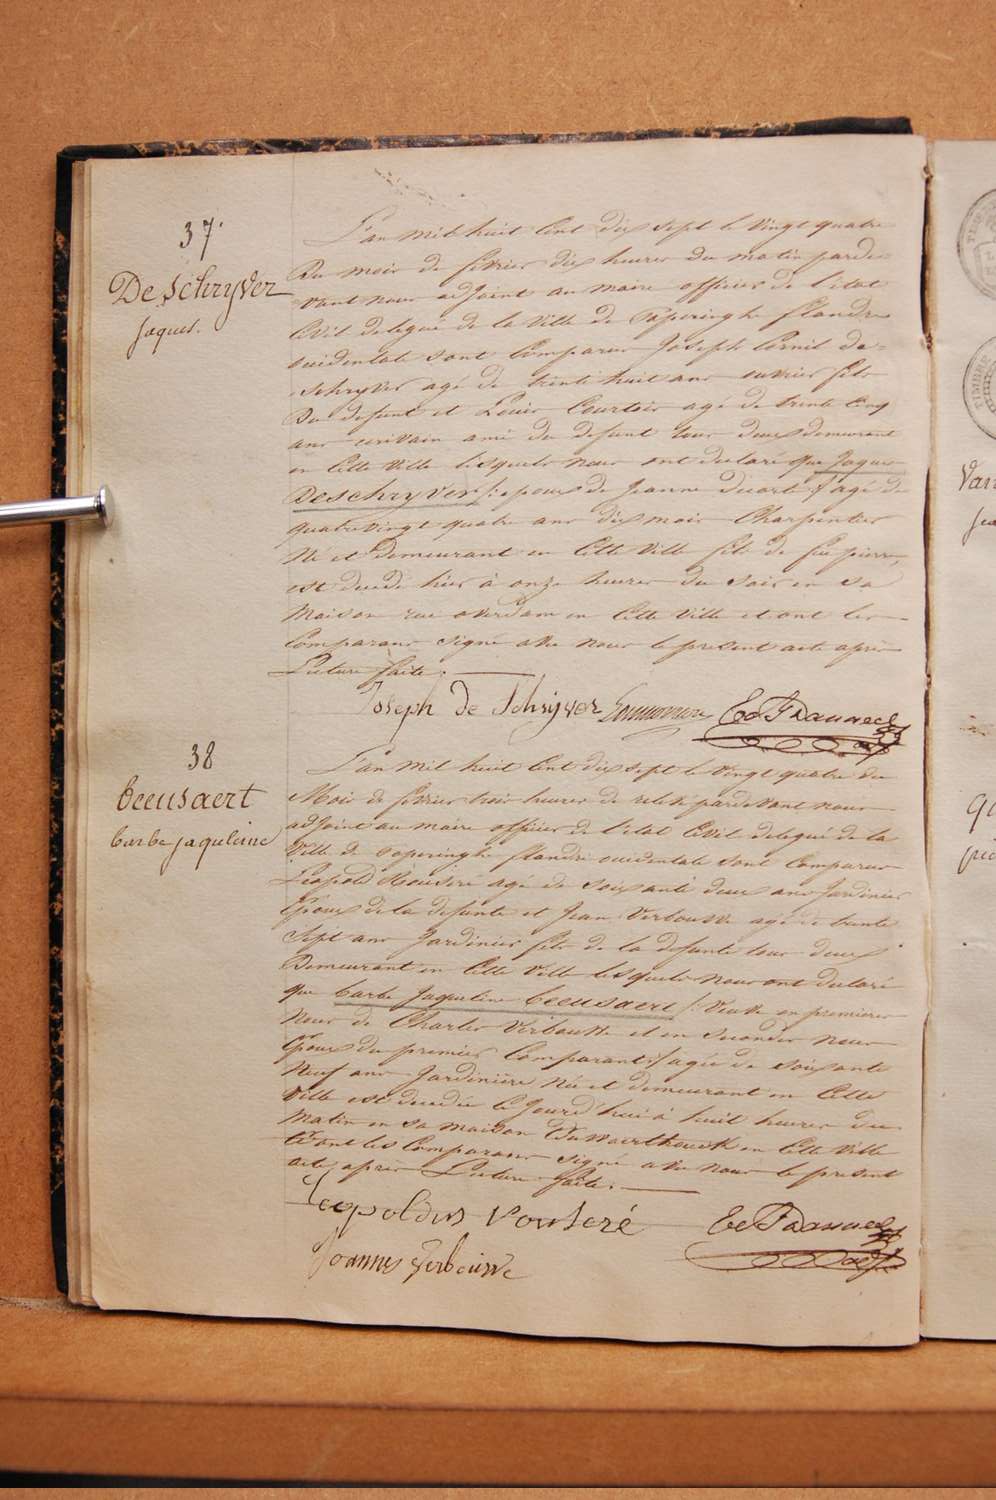 37.
DeSchryver
jaques.
L'an mil huit Cent dix sept le vingt quatre
Du mois de fevrier dix heures du matin parde
vant nous adjoint au maire officier de l'etat
Civil delegué de la Ville de Poperinghe flandre
occidentale sont Comparus Joseph Cornil de=
Schryver agé de trente huit ans ouvrier fils
Du defunt et Louis Courtois agé de trente Cinq
ans ecrivain ami du defunt tous deux demeurant
en Cette Ville lesquels nous ont declaré que Jaques
Deschryver /: epoux de Jeanne :/ agé de
quatrevingt quatre ans dix mois Charpentier
Né et Demeurant en Cette Ville fils de feu pierre,
est decedé hier à onze heures du soir en sa
Maison rue overdam en Cette Ville et ont les
Comparans signé avec nous le present acte après
Lecture faite.
Joseph de Schryver
38
Ceeusaert
barbe jaqueleine
L'an Mil huit Cent dix sept le Vingt quatre du
Mois de fevrier trois heures de relevé pardevant nous
adjoint au maire officier de l'etat Civil delegué de la
Ville de Poperinghe flandre occidentale sont Comparus
Leopold agé de soixante deux ans Jardinier
Epoux de la defunte et Jean Verbouwe agé de trente
Sept ans Jardinier fils de la defunte tous deux
Demeurant en Cette Ville lesquels nous ont declaré
que barbe Jaqueline Ceeusaert /: Veuve en premieres
Noces de Charles Verbouwe et en secondes noces
Epouse du premier Comparant :/ agée de soixante
Neuf ans Jardiniere Née et demeurant en Cette
Ville est decedée le Jourd'hui à huit heures du
Matin en sa maison en Cette Ville
et ont les Comparans signé avec nous le present
acte après Lecture faite.
Leopoldus Vouseré
Joannes Verbouwe